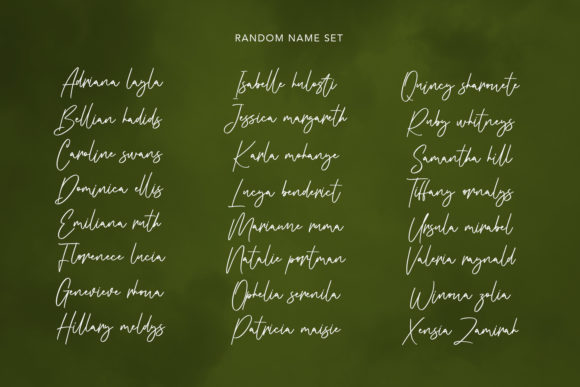 RANDOM NAME SET
Adriana layla
Bellian hadids
Caroline swans
Dominica ellis
Emiliana ruth
Florenece lucia
Genevieve rhona
Hillary meldys
Isabelle kulosti
Jessica margareth
Karla mohanye
Lucya benderict
Marianne ruma
Natalie portman
Ophelia serenila
Patricia maisie
Quincy sharowete
Ruby whitneys
Samantha hill
Tiffany ornalys
Ursula mirabel
Valeria raynald
Winona zolia
Xensia Zamirah